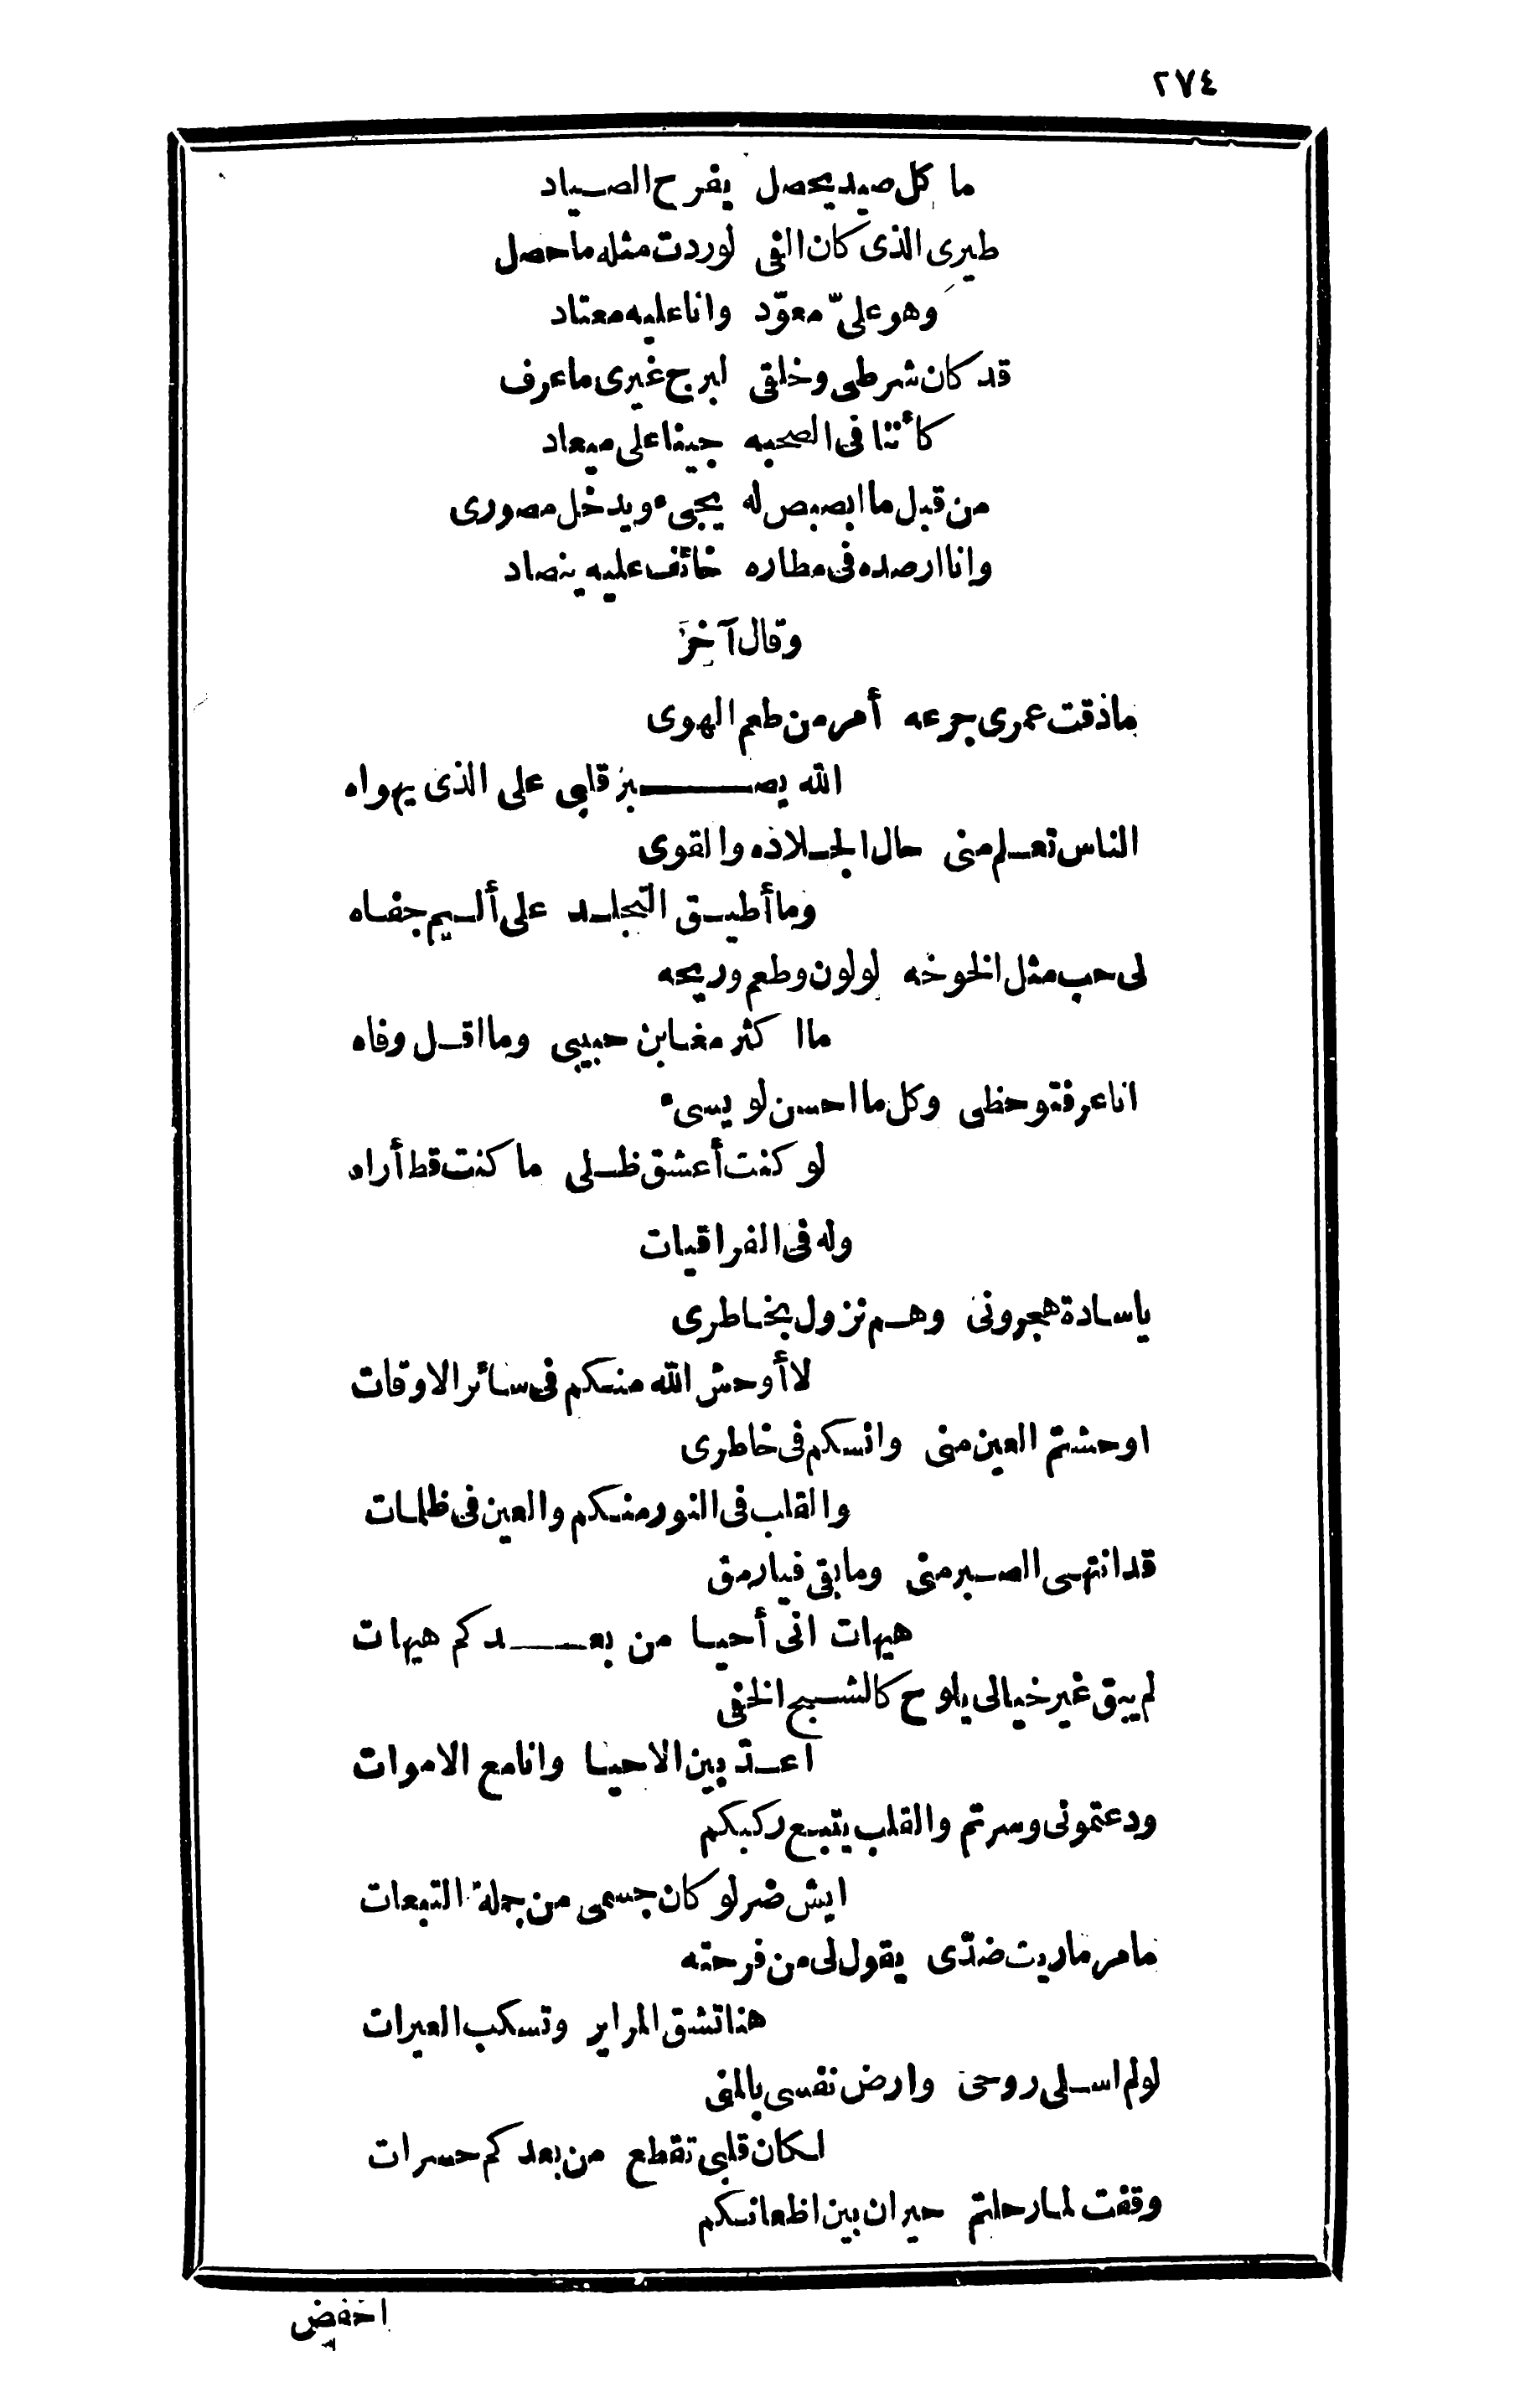 ٢٧٤
ما كل صيد يحصل يفرح الصياد
طيرى الذى كان الفى لوردت مثله ما حصل
وهو علىّ معوّد وانا عليه معتاد
قد كان شرطى وخلقى لبرج غيرى ما عرف
كأننا فى الصحبه جينا على ميعاد
من قبل ما ابصبص له يجىء ويدخل مصورى
وانا ارصده فى مطاره خائف عليه ينصاد
وقال آخر
ماذقت عمرى جرعه أمر من طعم الهوى
الله يصبر قلبى على الذى يهواه
الناس تعلم منى حال الجلاده والقوى
وما أطيق التجلد على أليم جفاه
لى حب مثل الخوخه لو لون وطعم وريحه
ما اكثر مغابن حبيبى وما اقل وفاه
انا عرفتو حظى وكل ما احسن لو يسىء
لو كنت أعشق ظلى ما كنت قط أراه
وله فى الفراقيات
ياسادة هجرونى وهم نزول بخاطرى
لا أوحش الله منكم فى سائر الاوقات
اوحشتم العين منى وانسكم فى خاطرى
والقلب فى النور منكم والعين فى ظلمات
قد انتهى الصبر منى وما بقى فيا رمق
هيهات انى أحيا من بعدكم هيهات
لم يبق غير خيالى يلوح كالشبح الخفى
اعدّ بين الاحيا وانا مع الاموات
ودعتمونى وسرتم والقلب يتبع ركبكم
ايش ضر لو كان جسمى من جملة التبعات
ما مر ماريت ضدّى يقول لى من فرحته
هنا تشق المراير وتسكب العبرات
لولم اسلى روحى وارض نفسى بالمنى
لكان قلبى تقطع من بعدكم حسرات
وقفت لما رحلتم حيران بين اظعانكم
اخفض